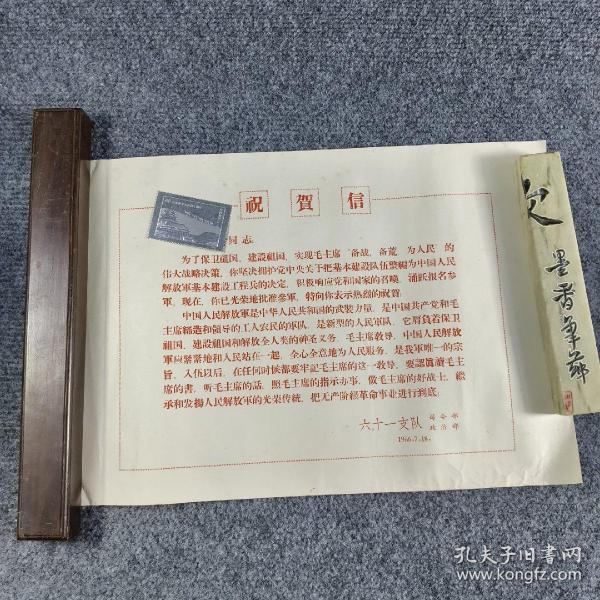 祝賀信
同志:
为了保卫祖国、建設祖国,实现毛主席“备战、备荒、为人民”的
伟大战略决策,你坚决拥护党中央关于把基本建設队伍整編为中国人民
解放軍基本建設工程兵的决定,积极响应党和国家的召喚,涌跃报名参
軍,现在,你已光荣地批准参軍,特向你表示热烈的祝賀。
中国人民解放軍是中华人民共和国的武装力量,是中国共产党和毛
主席締造和領导的工人农民的軍队,是新型的人民軍队,它肩負着保卫
祖国、建設祖国和解放全人类的神圣义务,毛主席敎导,中国人民解放
軍应紧紧地和人民站在一起,全心全意地为人民服务,是我軍唯一的宗
旨,入伍以后,在任何时候都要牢記毛主席的这一敎导,要認眞讀毛主
席的書,听毛主席的話,照毛主席的指示办事,做毛主席的好战士,繼
承和发揚人民解放軍的光荣传統,把无产阶級革命事业进行到底。
六十一支队 司令部
政治部
1966.7.18.
墨香
孔夫子旧書网
www.kongfz.com